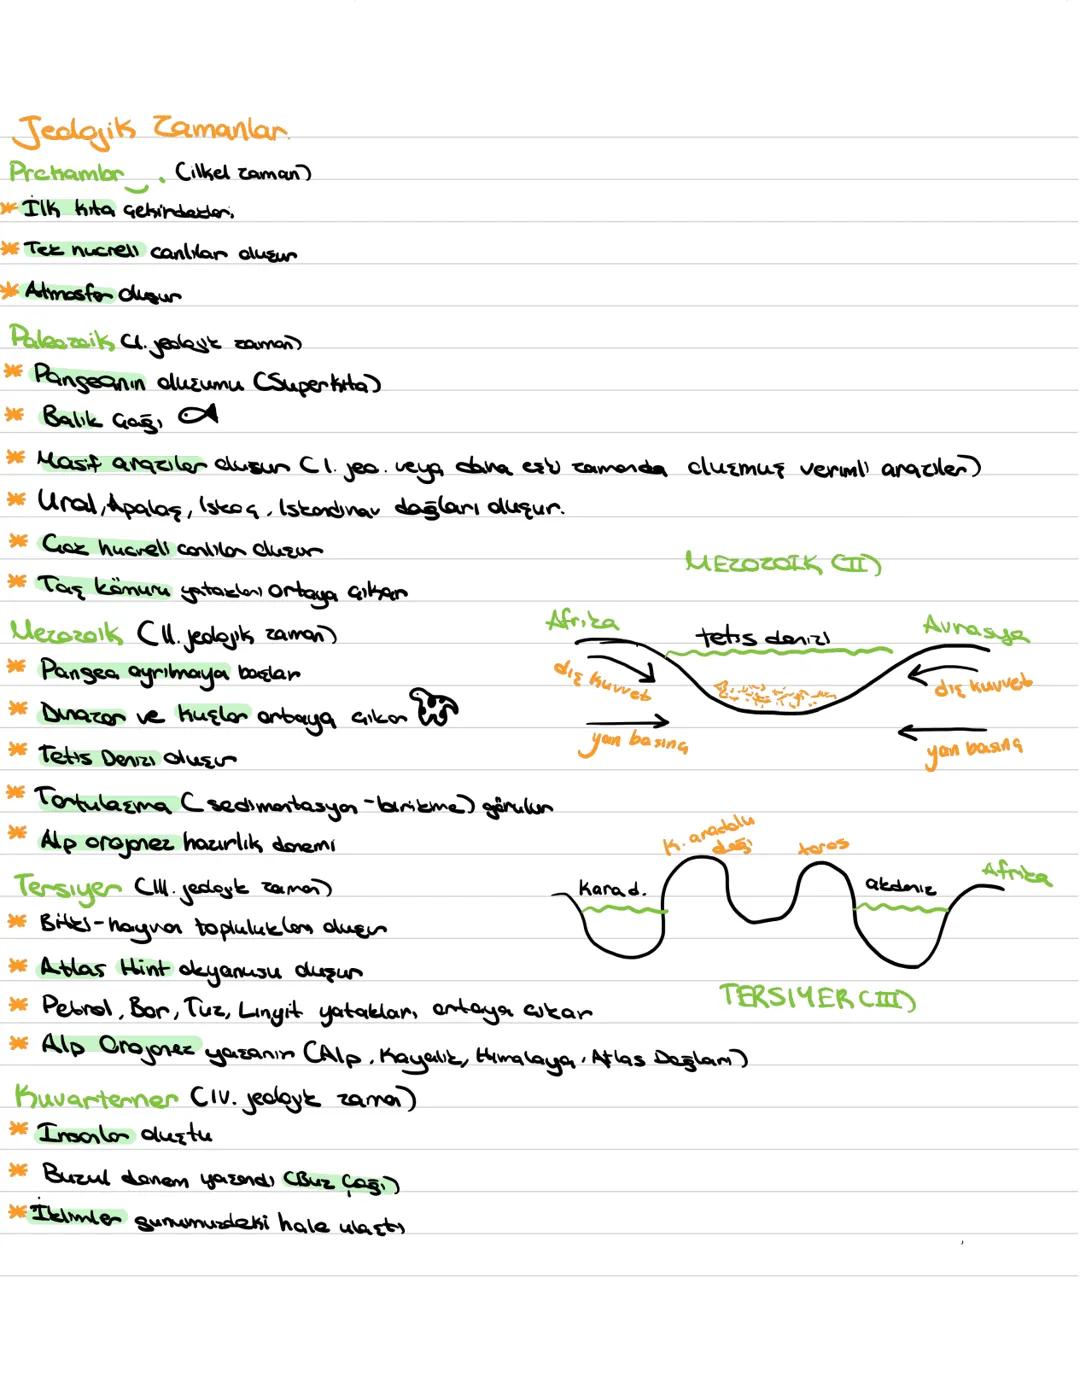 Jeolojik Zamanlar
Prekambr (ilkel zaman)
* İlk kıta çekirdekleri
* Tek hücreli canlılar oluşur
* Atmosfer oluşur
Paleozoik (I. jeolojik zaman)
* Pangeanın oluşumu (Superkıta)
* Balık Çağı
* Masif araziler oluşur (I. jeo. veya daha eski zamanda oluşmuş verimli araziler)
* Ural, Apalaş, İskoç, İskandinav dağları oluşur.
* Çok hücreli canlılar oluşur
* Taş kömürü yatakları ortaya çıkar
MEZOZOIK (II)
Mezozoik (II. jeolojik zaman)
* Pangea ayrılmaya başlar
* Dinazor ve kuşlar ortaya çıkar
* Tetis Denizi oluşur
* Tortulaşma (sedimantasyon-birikme) görülür
* Alp orojenez hazırlık dönemi
Afrika
tetis denizi
Avrasya
dış kuvvet
dış kuvvet
yan basınç
yan basınç
Tersiyer (III. jeolojik zaman)
* Bitki-hayvan toplulukları oluşur
* Atlas Hint okyanusu oluşur
* Petrol, Bor, Tuz, Linyit yatakları ortaya çıkar
* Alp Orojenez yaşanır (Alp, Kayalık, Himalaya, Atlas Dağları)
K. anadolu
dağı
toros
Karad.
akdeniz
Afrika
TERSIYER (III)
Kuvarterner (IV. jeolojik zaman)
* İnsanlar oluştu
* Buzul dönem yaşandı (Buz Çağı)
* İklimler günümüzdeki hale ulaştı